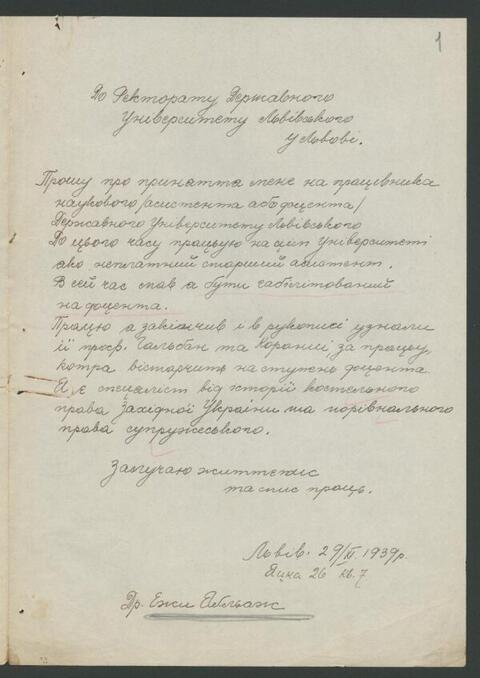 1
До Ректорату Державного
Університету Львівського
у Львові.
Прошу про принаття мене на працівника
наукового /асистента або доцента/
Державного Університету Львівського
До цього часу працьую на цім Університеті
яко неплатний старший асистент.
В сей час мав я бути габілітований
на доцента.
Працю я закінчив і в рукописі узнали
її проф. Гальбан та Кораниі за працьу,
котра вістарчить на ступень доцента
Я є специаліст від історії костельного
права Західної України та порівнального
права супружеського.
Залучаю життепис
та спис праць.
Львів. 29/XI. 1939р.
Яцка 26 кв. 7
Др. Ежи